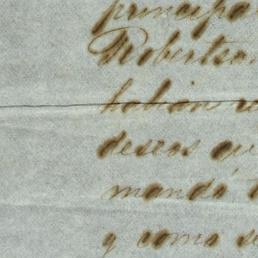 principa
Robertson
habian re
deseos que
mandó
y como se